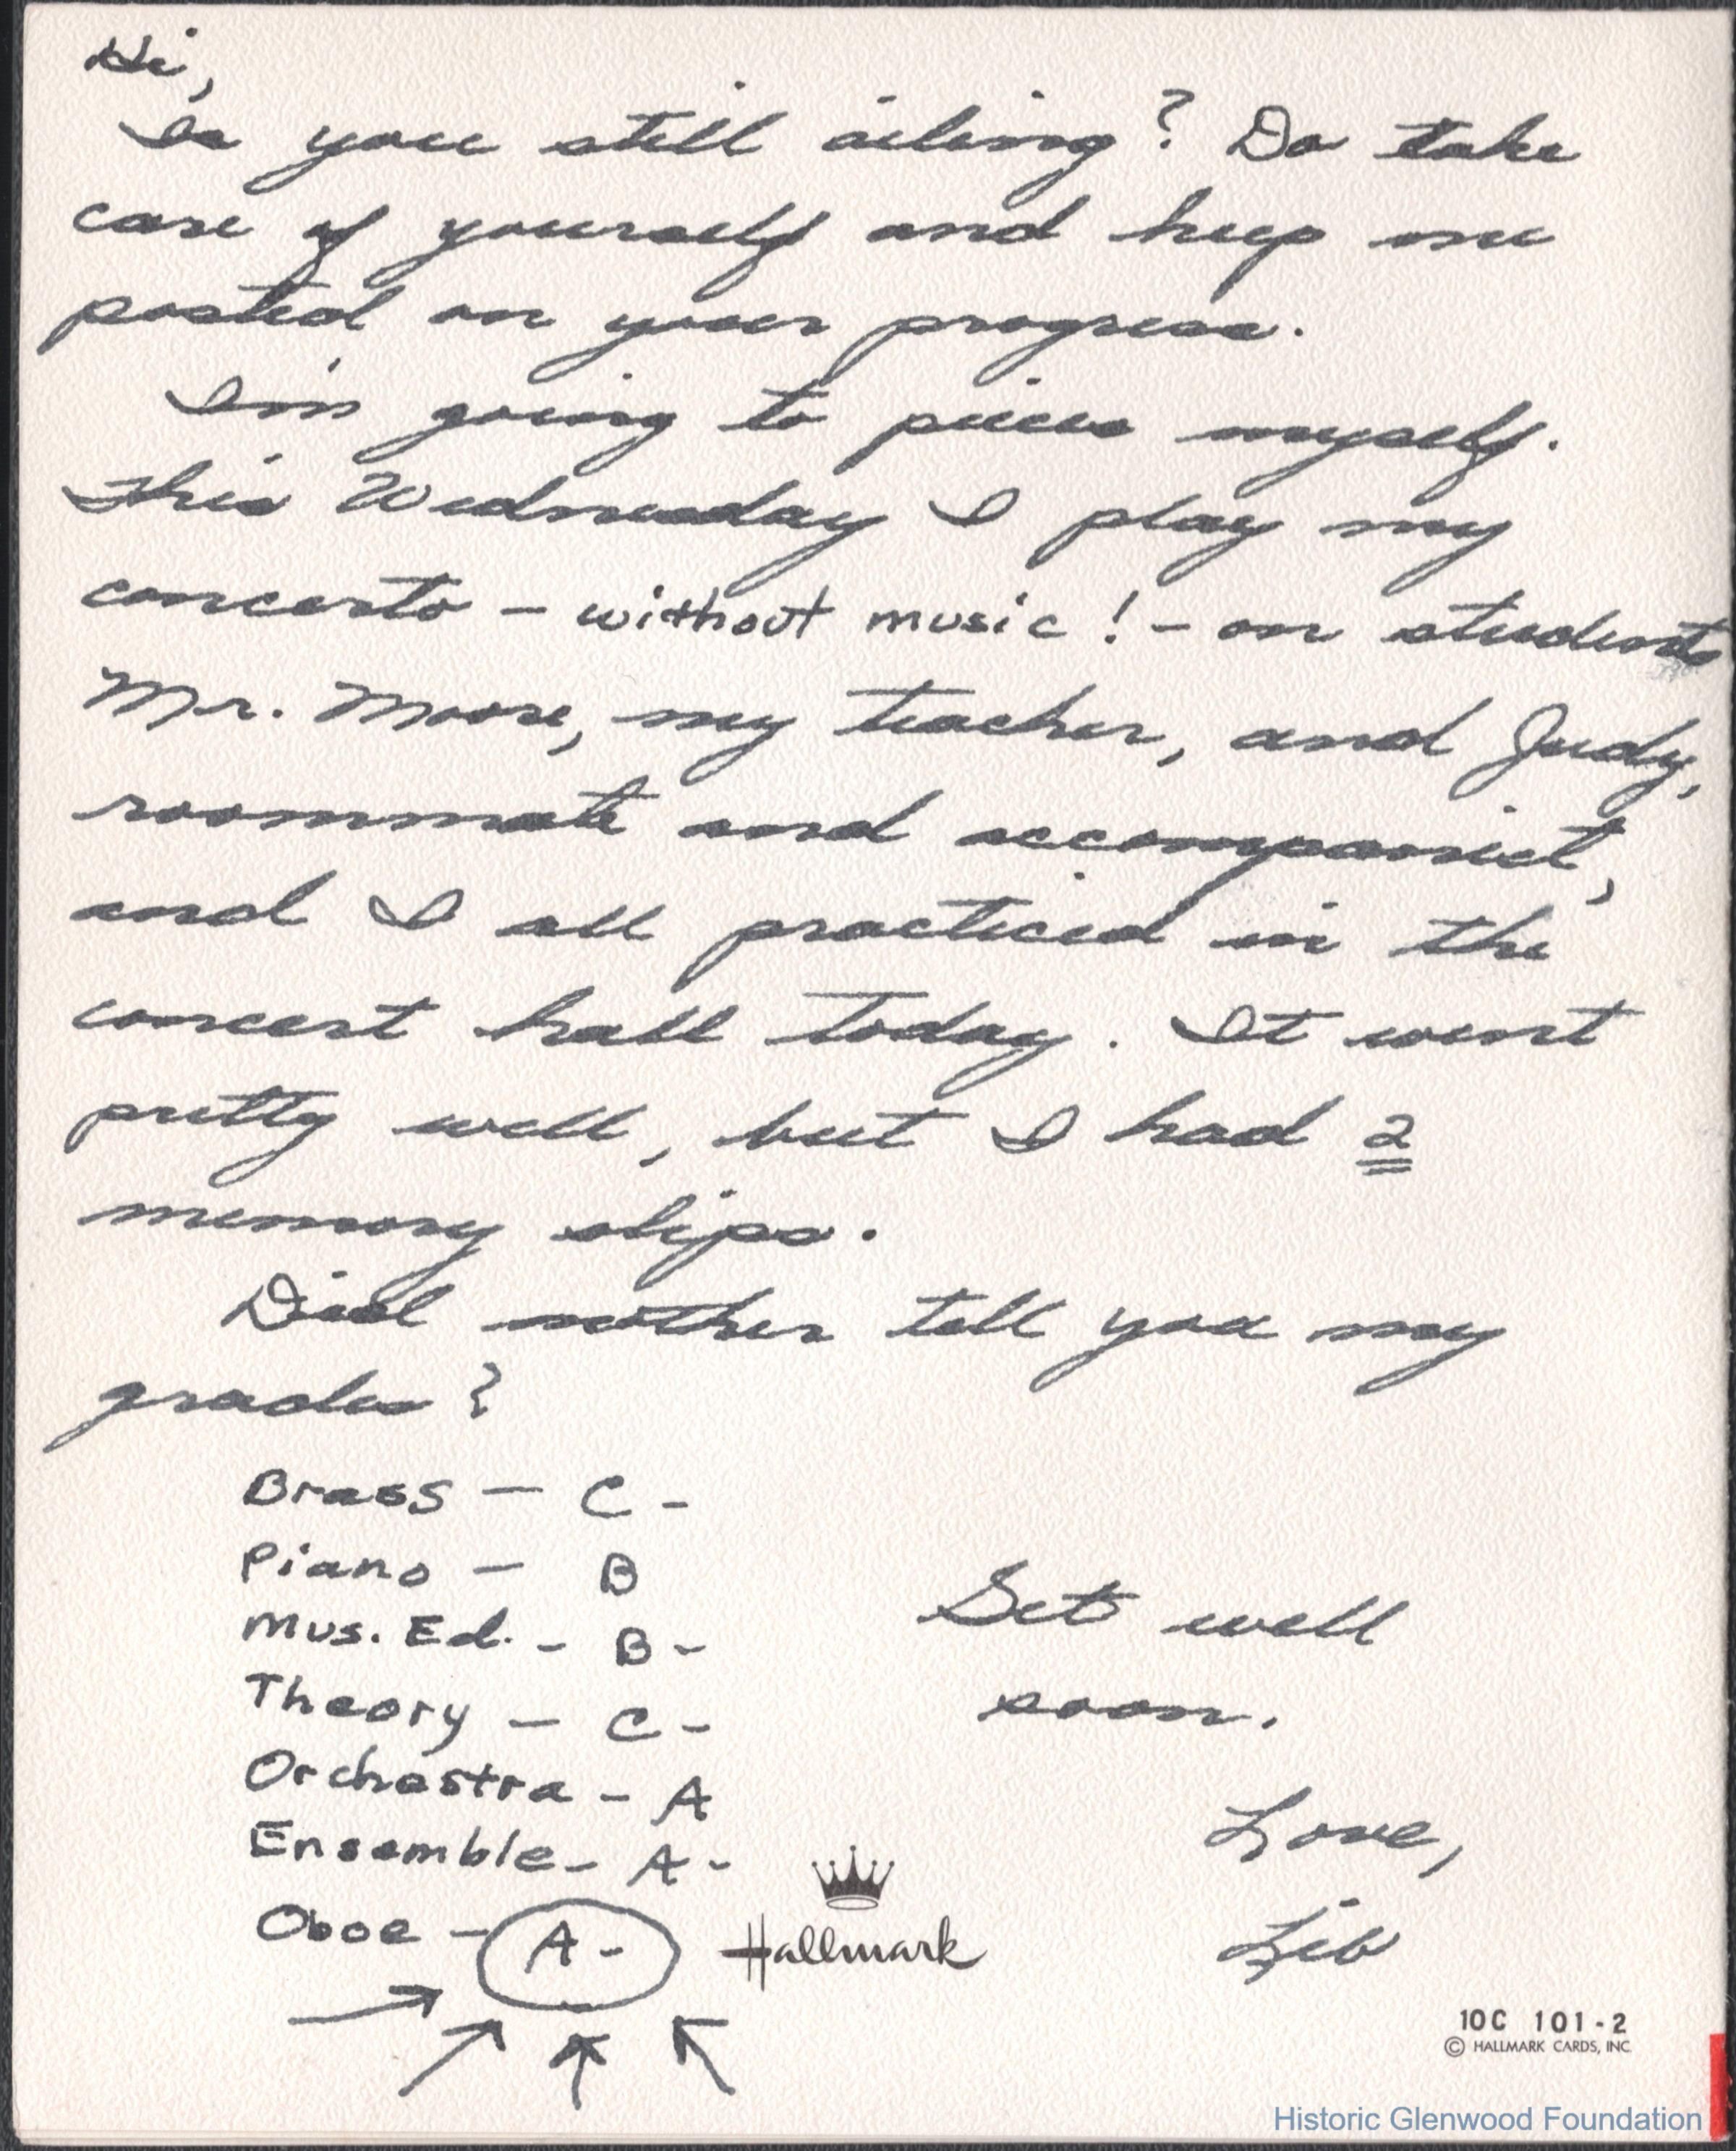 Hi,
Is you still ailing? Do take
care of yourself and keep me
posted on your progress.
I'm going to pieces myself.
This Wednesday I play my
concerto - without music! - on students
Mr. Moore, my teacher, and Judy,
roommate and accompanist,
and I all practiced in the
concert hall today. It went
pretty well, but I had 2
memory slips.
Did mother tell you my
grades?
Brass - C -
Piano - B
Mus. Ed. - B -
Theory - C -
Orchestra - A
Ensemble - A -
Oboe - A -
Get well
soon.
Love,
Lib
Hallmark
10C 101-2
© HALLMARK CARDS, INC.
Historic Glenwood Foundation